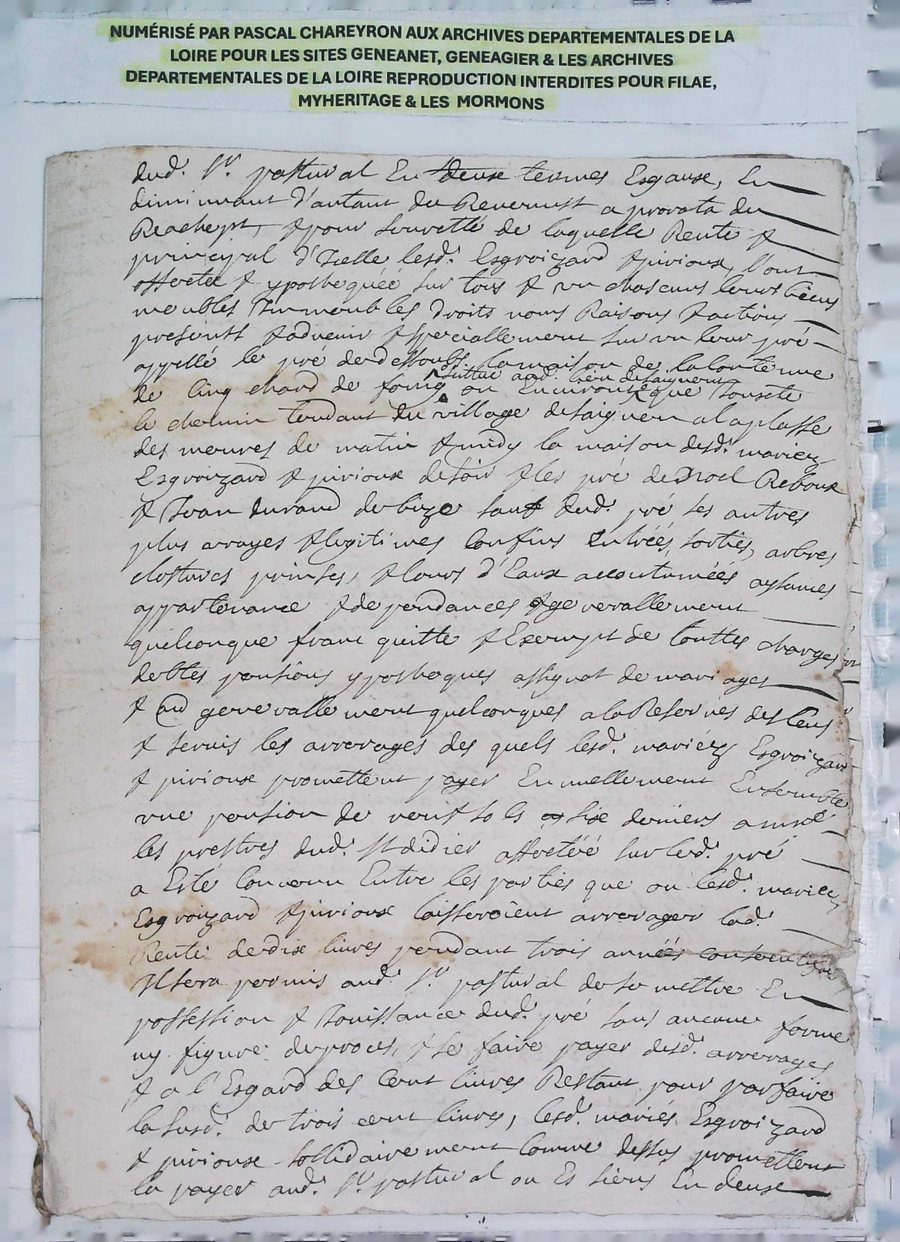 NUMÉRISÉ PAR PASCAL CHAREYRON AUX ARCHIVES DEPARTEMENTALES DE LA
LOIRE POUR LES SITES GENEANET, GENEAGIER & LES ARCHIVES
DEPARTEMENTALES DE LA LOIRE REPRODUCTION INTERDITES POUR FILAE,
MYHERITAGE & LES MORMONS
dud. Sr. pastural En deux termes Esgaux, En
diminuant d'autant du a prorata du
Reachept, & pour seuretté de laquelle Rente &
principal d'Icelle lesd. Esgroizard & pirioux, l'ont
affecté & ypothequéé sur tous & un chascuns leurs biens
meubles Immeubles droits noms Raisons & actions
presents & advenir & speciallement sur un leur pré
appellé le pré de dessoubs la maison de la contenue
sittué aud. lieu
de cinq chard de foing ou Environt que Jouxte
le chemin tendant du village a la plasse
des meures de matin & midy la maison desd. mariez
Esgroizard & pirioux de soir & les pré de Noel Reboux
& Jean durand de bize sauf dud. pré ses autres
plus vrayes & legitimes confins Entréés, sorties, arbres
clostures prinses, & cours d'Eaux accoutuméés aysances
appartenance & dependances & generallement
quelconque franc quitte & Exempt de touttes charges
debtes pensions ypotheques assignat de mariages
& generallement quelconques a la Reserves des Cens
& servis les arrerages des quels lesd. mariez Esgroizard
& pirioux promettent payer Ensemble
une pension de vent sols six deniers a
les prestres dud. St didier affectéé sur led. pré
a Esté Convenu Entre les parties que ou lesd. mariez
Esgroizard & pirioux laisseroient arrerager lad.
Rente de dix livres pendant trois années
Il sera permis aud. Sr. pastural de se mettre En
possession & Jouissance dud. pré sans aucune forme
ny figure de proces, & se faire payer desd. arrerages
& a l'Esgard des Cent livres Restant pour parfaire
la susd. de trois cent livres, lesd. mariés Esgroizard
& pirioux sollidairement comme dessus promettent
la payer aud. Sr. pastural ou Es siens En deux